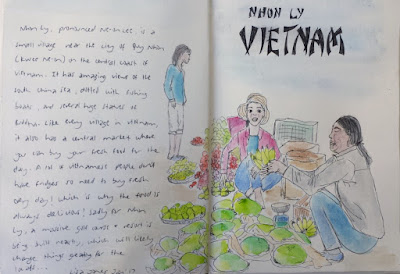 Nhon Ly, pronounced                is a
small village near the city of Quy Nhon
           on the central coast of
Vietnam. It has amazing views of the
South China Sea, dotted with fishing
boats, and several huge statues of
Buddha. Like every village in Vietnam,
it also has a central market where
you can buy your fresh food for the
day. A lot of Vietnamese people don't
have fridges so need to buy fresh
every day! which is why the food is
always delicious! Sadly for Nhon
Ly, a massive golf course + resort is
being built nearby, which will likely
change things greatly for the
locals...
NHON LY
VIETNAM